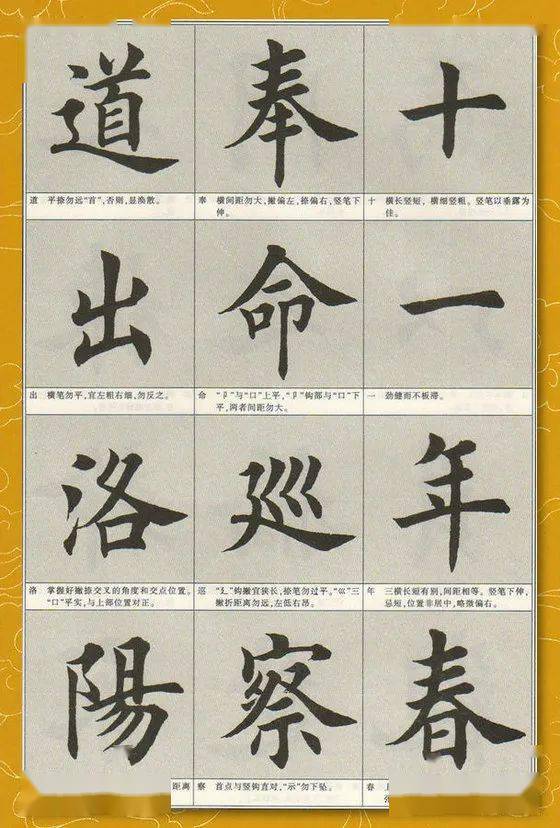 十
十 横长竖短，横细竖粗。竖笔以垂露为
佳。
一
一 劲健而不板滞。
年
年 三横长短有别，间距相等。竖笔下伸，
忌短，位置非居中，略微偏右。
春
春
奉
奉 横间距勿大，撇偏左，捺偏右，竖笔下
伸。
命
命 “卩”与“口”上平，“卩”钩部与“口”下
平，两者间距勿大。
巡
巡 “廴”钩撇宜狭长，捺笔勿过平。“巛”三
撇折距离勿远，左低右昂。
察
察 首点与竖钩直对，“示”勿下坠。
道
道 平捺勿远“首”，否则，显涣散。
出
出 横笔勿平，宜左粗右细，勿反之。
洛
洛 掌握好撇捺交叉的角度和交点位置。
“口”平实，与上部位置对正。
陽
距离